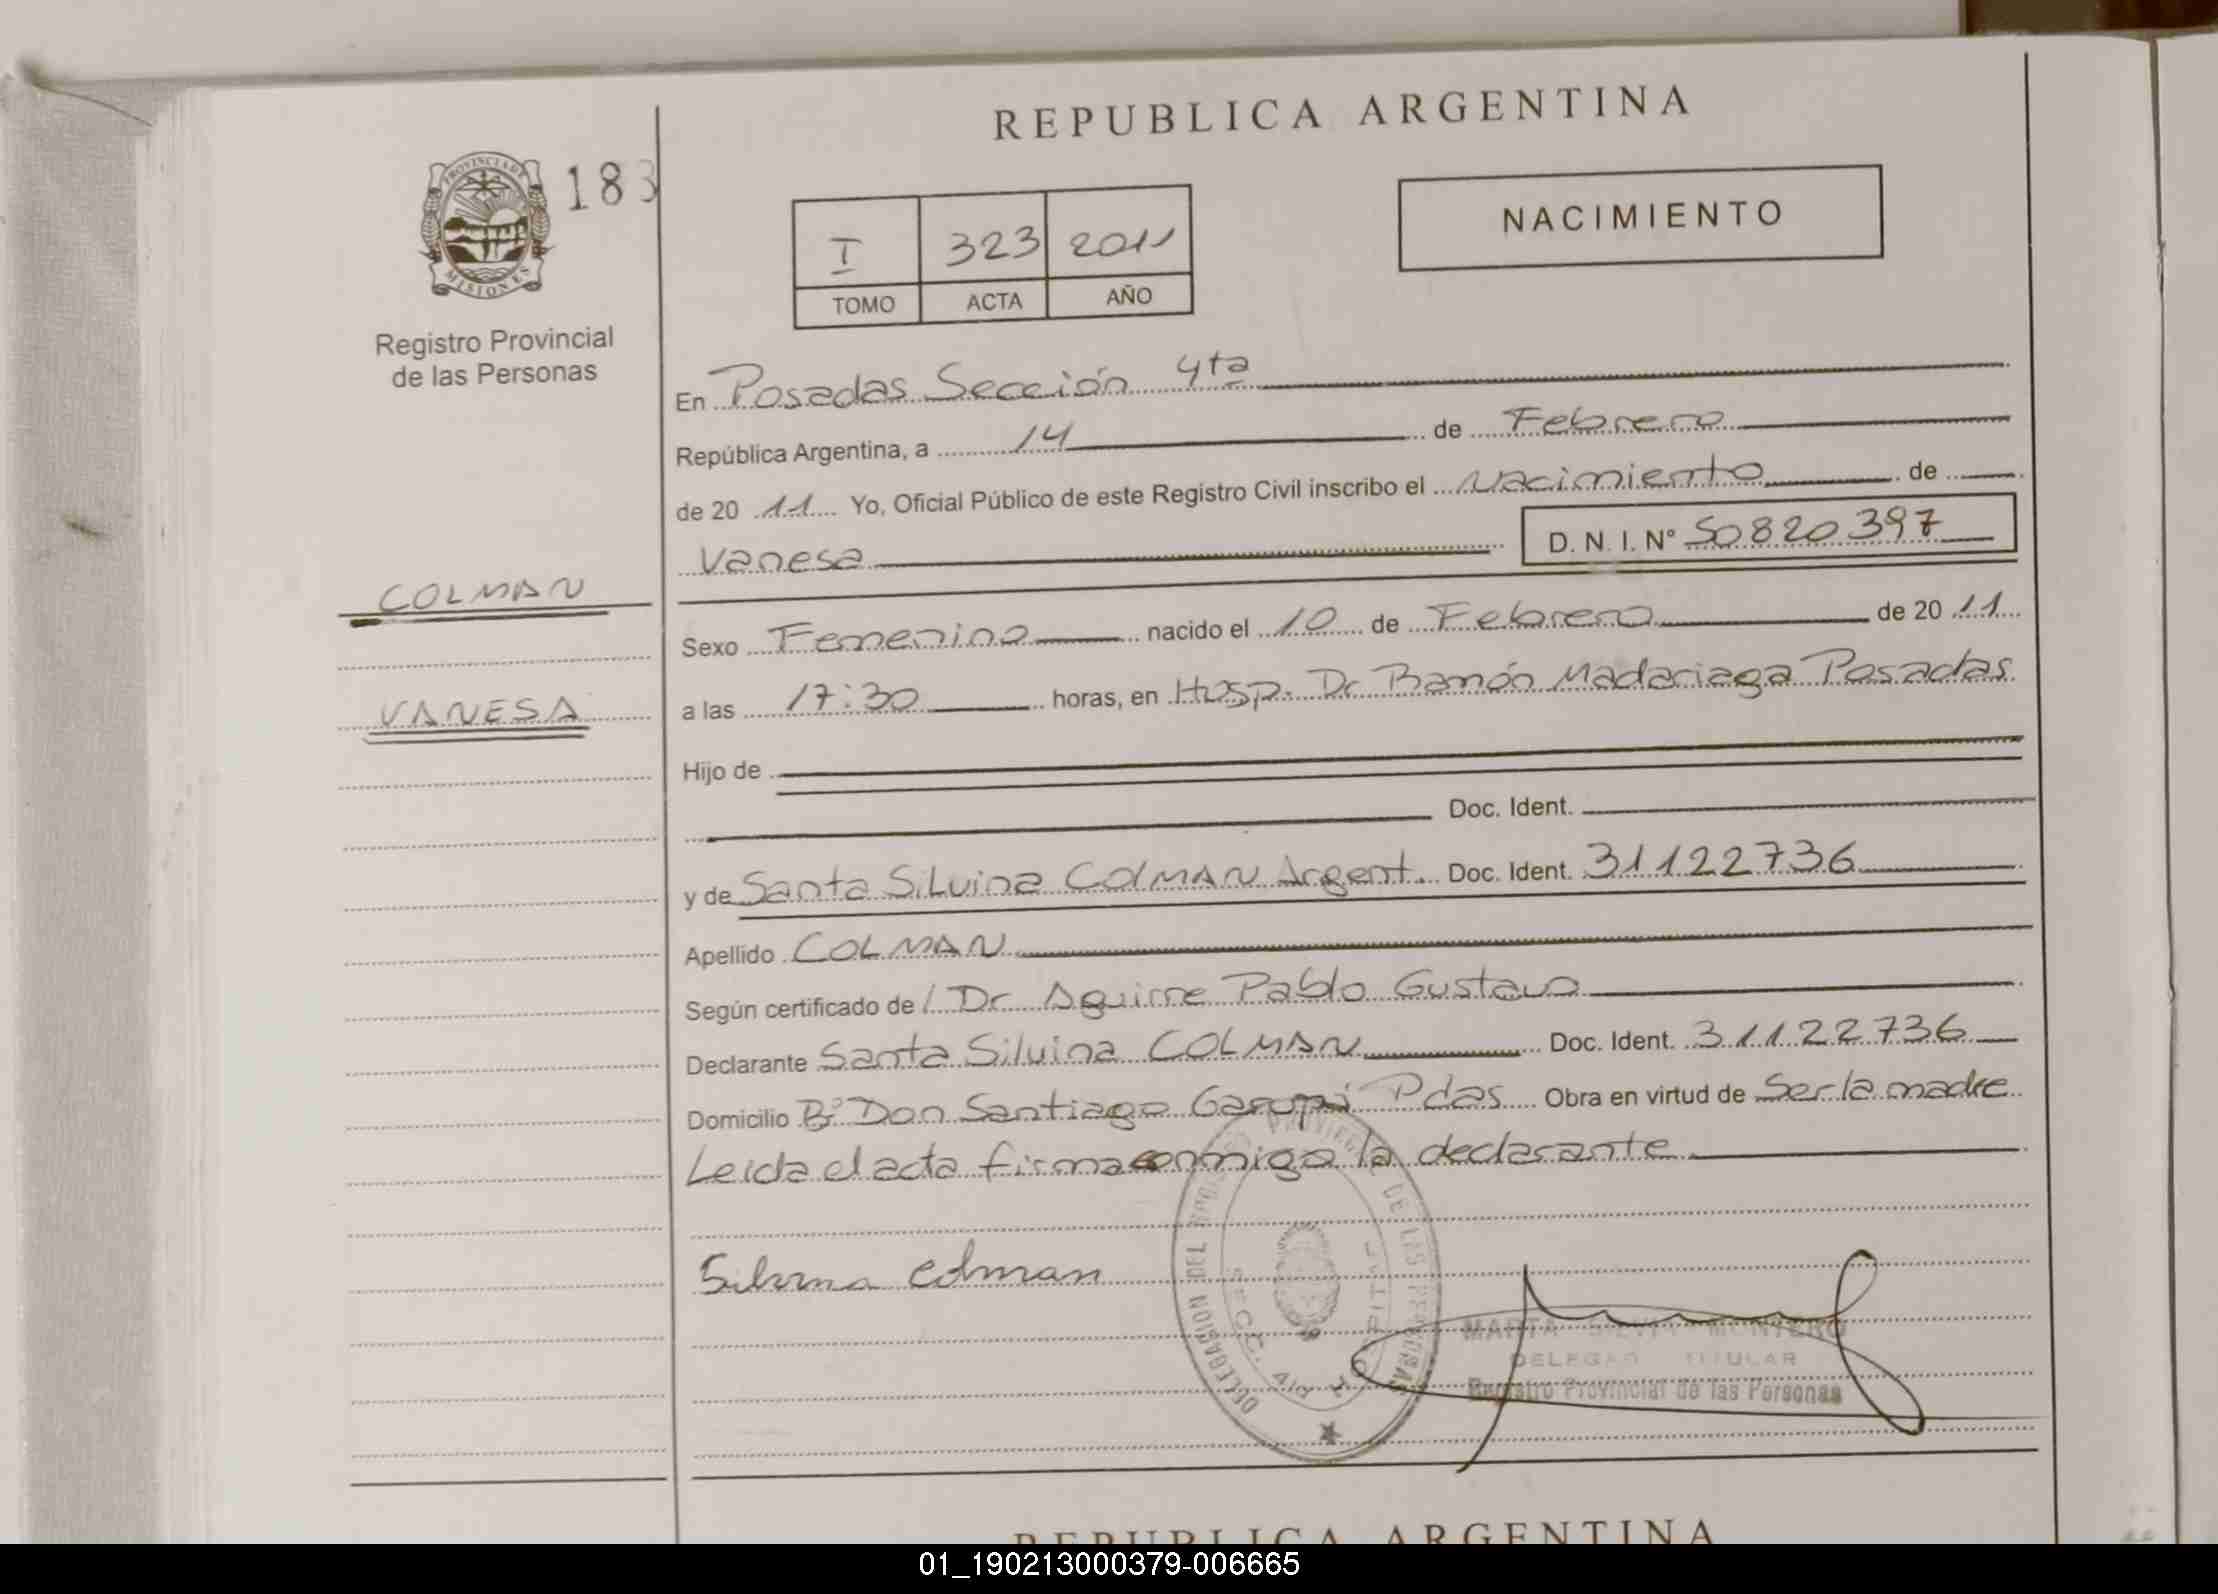 REPUBLICA ARGENTINA
PROVINCIA DE
MISIONES
183
Registro Provincial
de las Personas
I 323 2011
TOMO ACTA AÑO
NACIMIENTO
En Posadas Sección 4ta
República Argentina, a 14 de Febrero
de 20 11 Yo, Oficial Público de este Registro Civil inscribo el Nacimiento de
Vanesa D. N. I. N° 50820397
COLMAN
Sexo Femenino nacido el 10 de Febrero de 20 11
VANESA
a las 17:30 horas, en Hosp. Dr Ramón Madariaga Posadas
Hijo de
Doc. Ident.
y de Santa Silvina COLMAN Argent. Doc. Ident. 31122736
Apellido COLMAN
Según certificado de Dr Aguirre Pablo Gustavo
Declarante Santa Silvina COLMAN Doc. Ident. 31122736
Domicilio B° Don Santiago Garupá Pdas Obra en virtud de Ser la madre
Leida el acta firma conmigo la declarante
Silvina Colman
DELEGACION DEL REGISTRO PROVINCIAL DE LAS PERSONAS
MARTA SILVIA MONTERO
DELEGADO TITULAR
Registro Provincial de las Personas
REPUBLICA ARGENTINA
01_190213000379-006665